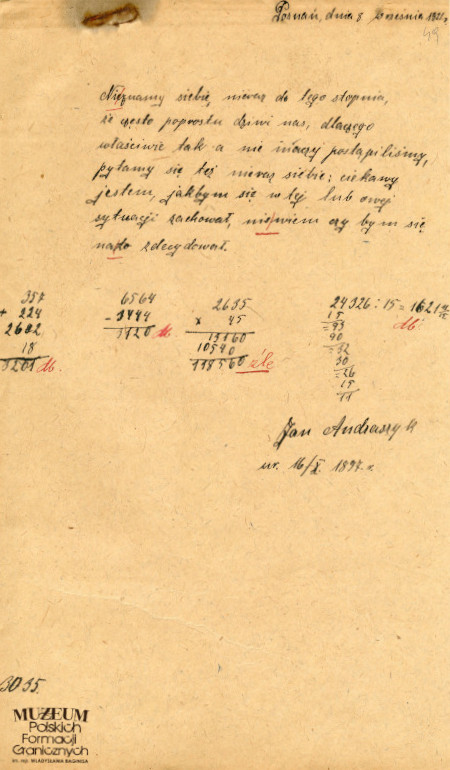 Poznań, dnia 3 Września 1921 r.
49
Nieznamy siebie, nieraz do tego stopnia,
że często poprostu dziwi nas, dlaczego
właściwie tak a nie inaczej postąpiliśmy,
pytamy się też nieraz siebie: ciekawy
jestem, jakbym się w tej lub owej
sytuacji zachował, niewiem czy bym się
na to zdecydował.
357
+ 224
2602
18
3201 db.
6564
- 3444
3120 db
2635
x 45
13160
10540
118560 źle
24326 : 15 = 1621 11/15
15
= 93
90
= 32
30
= 26
15
11
db
Jan Andraszyk
ur. 16/X. 1897 r.
3035.
MUZEUM
Polskich
Formacji
Granicznych
im. mjr. WŁADYSŁAWA RAGINISA